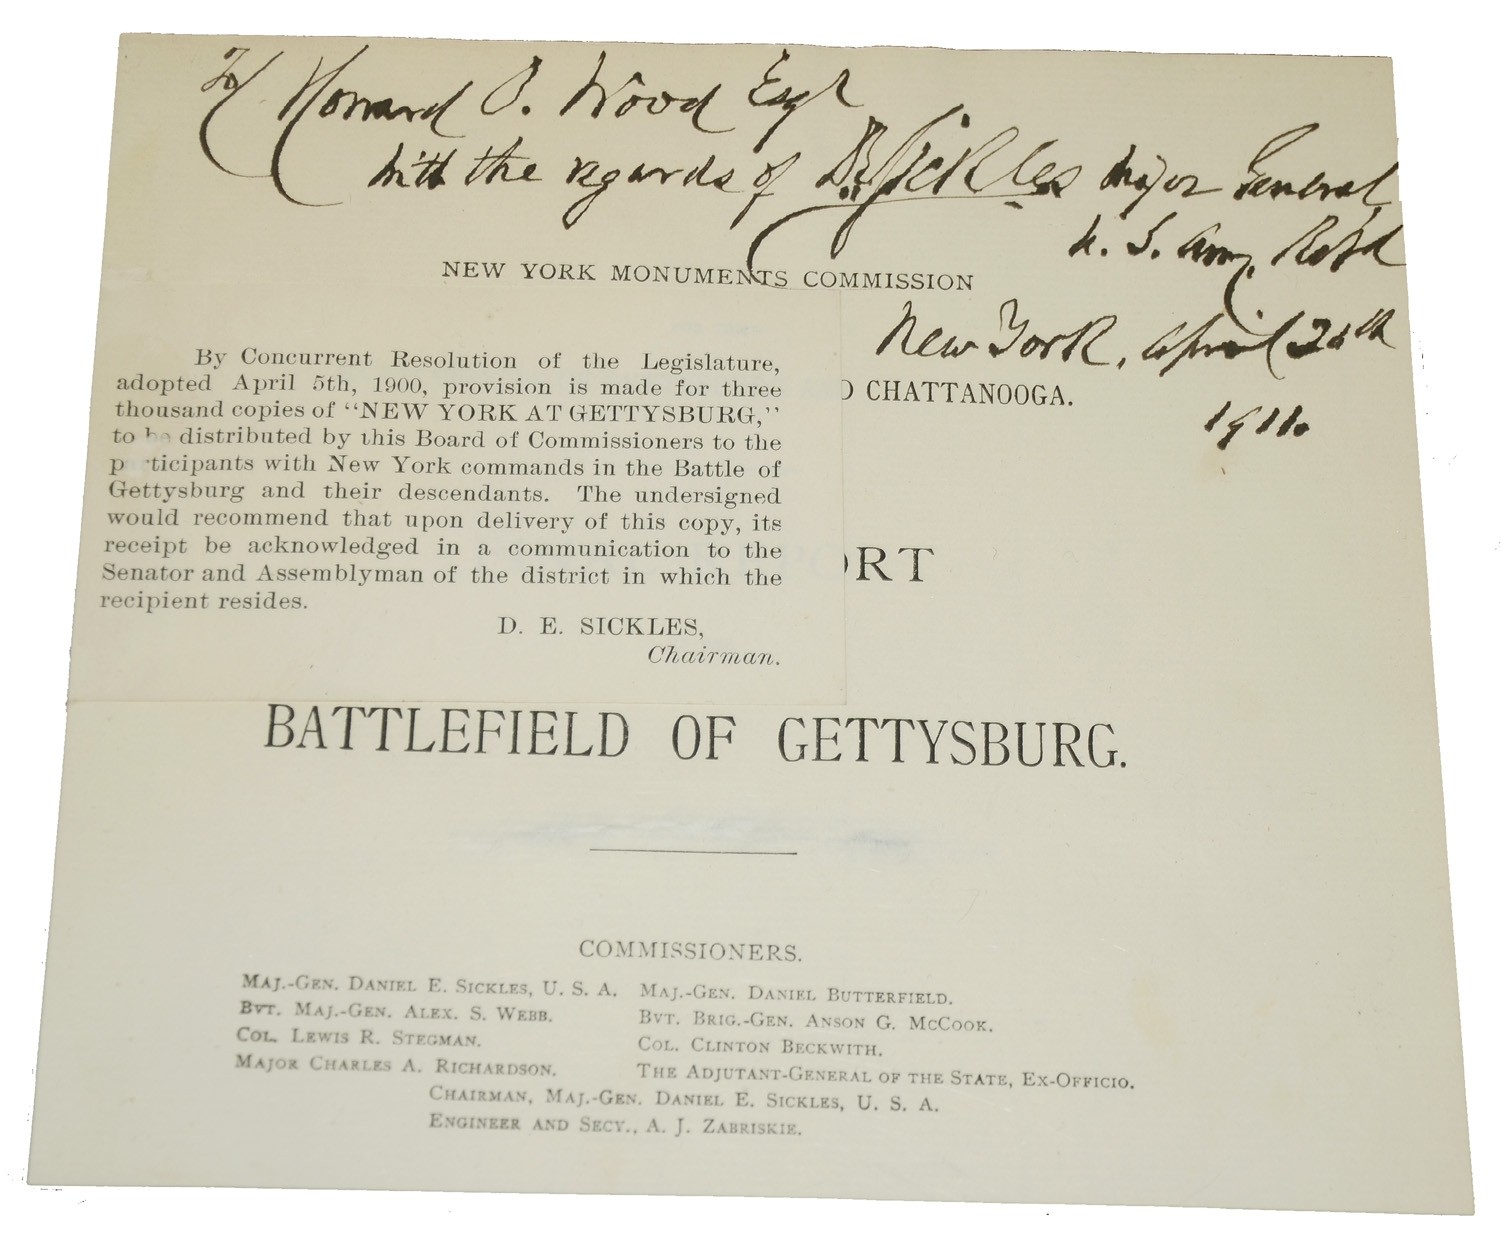 To Howard O. Wood Esqr
with the regards of D. E. Sickles Major General
U. S. Army, Ret'd
NEW YORK MONUMENTS COMMISSION
New York, April
1911.
CHATTANOOGA.
By Concurrent Resolution of the Legislature,
adopted April 5th, 1900, provision is made for three
thousand copies of “NEW YORK AT GETTYSBURG,”
to be distributed by this Board of Commissioners to the
p ticipants with New York commands in the Battle of
Gettysburg and their descendants. The undersigned
would recommend that upon delivery of this copy, its
receipt be acknowledged in a communication to the
Senator and Assemblyman of the district in which the
recipient resides.
D. E. SICKLES,
Chairman.
ORT
BATTLEFIELD OF GETTYSBURG.
COMMISSIONERS.
MAJ.-GEN. DANIEL E. SICKLES, U. S. A. MAJ.-GEN. DANIEL BUTTERFIELD.
BVT. MAJ.-GEN. ALEX. S. WEBB. BVT. BRIG.-GEN. ANSON G. MCCOOK.
COL. LEWIS R. STEGMAN. COL. CLINTON BECKWITH.
MAJOR CHARLES A. RICHARDSON. THE ADJUTANT-GENERAL OF THE STATE, EX-OFFICIO.
CHAIRMAN, MAJ.-GEN. DANIEL E. SICKLES, U. S. A.
ENGINEER AND SECY., A. J. ZABRISKIE.